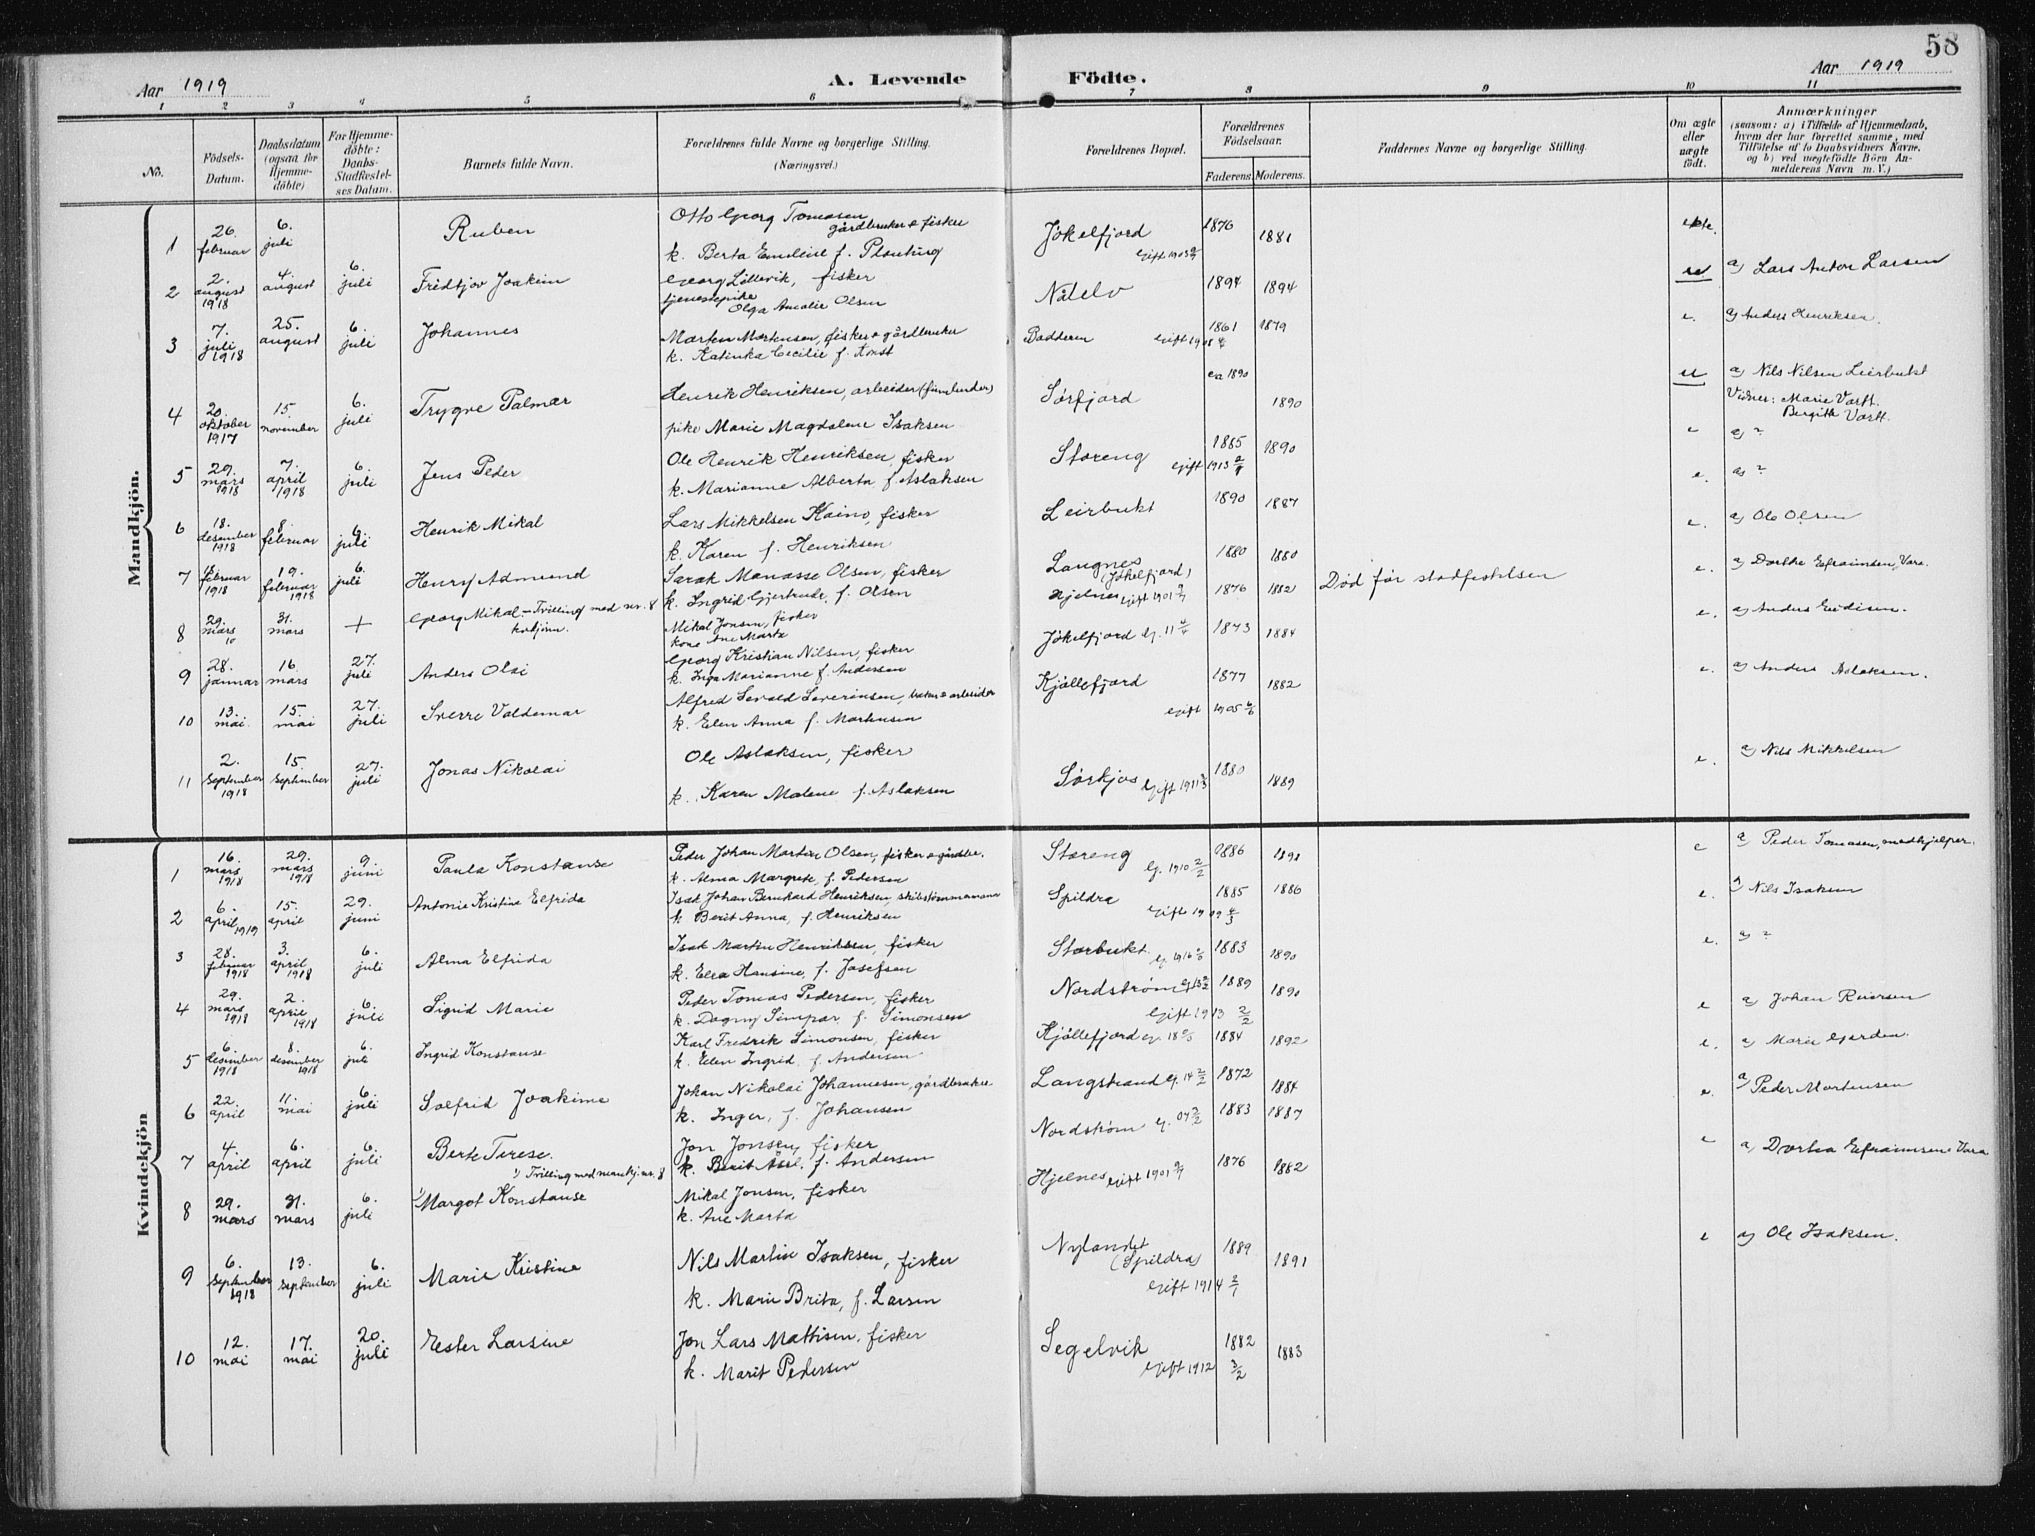 58
Aar 1919
A. Levende Födte.
Aar 1919
1 2 3 4 5 6 7 8 9 10 11
No.
Födsels-Datum.
Daabsdatum (ogsaa for Hjemmedöbte)
For Hjemmedöbte: Daabs-Stadfæstelses Datum.
Barnets fulde Navn.
Forældrenes fulde Navne og borgerlige Stilling. (Næringsvei.)
Forældrenes Bopæl.
Forældrenes Födselsaar.
Faderens. Moderens.
Faddernes Navne og borgerlige Stilling.
Om ægte eller uægte födt.
Anmærkninger (saasom: a) i Tilfælde af Hjemmedaab, hvem der har forrettet samme, med Tilföielse af to Daabsvidners Navne, og b) ved uægtefödte Börn Anmelderens Navn m. V.)
Mandkjön.
1 26. februar 6. juli Ruben Otto Georg Tomasen gårdbruker & fisker
k. Berta Emeline f. Jøkelfjord Gift 1903 1876 1881
2 2. august 1918 4. august 6. juli Fridtjov Joakim Georg Lillevik, fisker
tjenestepike Olga Amalie Olsen Nålelv 1894 1894 u a) Lars Anton Larsen
3 7. juli 1918 25. august 6. juli Johannes Morten Mortensen, fisker & gårdbruker
k. Katinka Cecilie f. Badderen Gift 1908 1861 1879 e. a) Anders Henriksen.
4 20. oktober 1917 15. november 6. juli Trygve Palmær Henrik Henriksen, arbeider
pike Marie Magdalene Isaksen Sørfjord ca 1890 1890 u a) Nils Nilsen Leirbukt
Vidner: Marie Vartt. Bergitte Vartt.
5 29. mars 1918 7. april 1918 6. juli Jens Peder Ole Henrik Henriksen, fisker
k. Marianne Alberta, f. Aslaksen Storeng Gift 1913 1885 1890 e a) ?
6 18. desember 1918 8. februar 6. juli Henrik Mikal Lars Mikkelsen Kaino, fisker
k. Karen f. Henriksen Leirbukt 1890 1887 e. a) ?
7 februar 1918 19. februar 1918 6. juli Henry Admund Sarak Manasse Olsen, fisker
k. Ingrid Gjertrude, f. Olsen Langnes (Jøkelfjord) 1880 1880 e. a) Ole Olsen
8 29. mars 31. mars + Georg Mikal - Tvilling med nr. 8 kvkjønn.
Mikal Jonsen, fisker
kone Ane Marta Hjelnes gift 1901 1876 1882 Død før stadfestelsen e. a) Dorthe Efraimsen, Vara.
9 28. januar 16. mars 27. juli Anders Olai Georg Kristian Nilsen, fisker
k. Inga Marianne f. Andersen Jøkelfjord G. 11 1873 1884 e. a) Anders
10 13. mai 15. mai 27. juli Sverre Valdemar Alfred Sevald Severinsen, & arbeider
k. Elen Anna f. Mortensen Kjøllefjord gift 1905 1877 1882 e. a) Anders Aslaksen.
11 2. September 1918 15. September 27. juli Jonas Nikolai Ole Aslaksen, fisker
k. Karen Malene f. Aslaksen Sørkjos Gift 1911 1880 1889 e. a) Nils Mikkelsen
Kvindekjön
1 16. mars 1918 29. mars 1918 9. juni Paula Konstanse Peder Johan Martin Olsen, fisker & gårdbr.
k. Alma Margrete, f. Pedersen Storeng G. 1910 1886 e a) Peder Tomasen, medhjelper.
2 6. april 1919 15. april 29. juni Antonie Kristine Elfrida Isak Johan Bernhard Henriksen, skibstømmermann
k. Berit Anna, f. Henriksen Spildra Gift 1909 1885 1886 e. a) Nils Isaksen
3 28. februar 1918 3. april 1918 6. juli Alma Elfrida Isak Martin Henriksen, fisker
k. Elea Hansine, f. Josefsen Storbukt G. 1916 1883 1890 e. a) ?
4 29. mars 1918 2. april 1918 6. juli Sigrid Marie Peder Tomas Pedersen, fisker
k. Dagny f. Simonsen Nordstrøm Gift 1913 1889 1890 e a) Johan Reiersen
5 6. desember 1918 8. desember 1918 6. juli Ingrid Konstanse Karl Fredrik Simonsen, fisker
k. Elen Ingrid f. Andersen Kjøllefjord G. 18 1884 1892 e. a) Marie Gjerden
6 22. april 11. mai 6. juli Solfrid Joakime Johan Nikolai Johannesen, gårdbruker
k. Inger, f. Johansen Langstrand G. 14 1872 1884 e. a) Peder Mortensen
7 4. april 6. april 6. juli Berte Terese. Jon Jonsen, fisker
k. Berit f. Andersen Nordstrøm G. 07 1883 1887
1) Tvilling med mankj. nr. 8
8 29. mars 31. mars 6. juli 1) Margot Konstanse Mikal Jonsen, fisker
k. Ane Marta Hjelnes gift 1901 1876 1882 e a) Dorthea Efraimsen Vara
9 6. September 1918 13. September 6. juli Marie Kristine Nils Martin Isaksen, fisker
k. Marie Brita, f. Larsen Nylandet (Spildra) Gift 1914 1889 1891 e a) Ole Isaksen.
10 12. mai 17. mai 20. juli Ester Larsine Jon Lars Mattisen, fisker
k. Marit Pedersen Segelvik Gift 1912 1882 1883